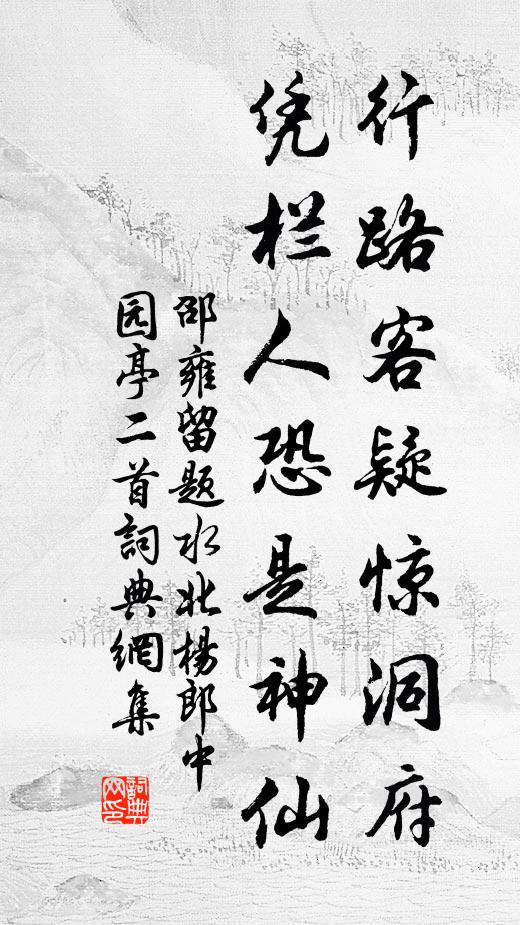 行路客疑惊洞府
凭栏人恐是神仙
邵雍留题水北杨郎中
园亭二首词典網集
詞典
网印